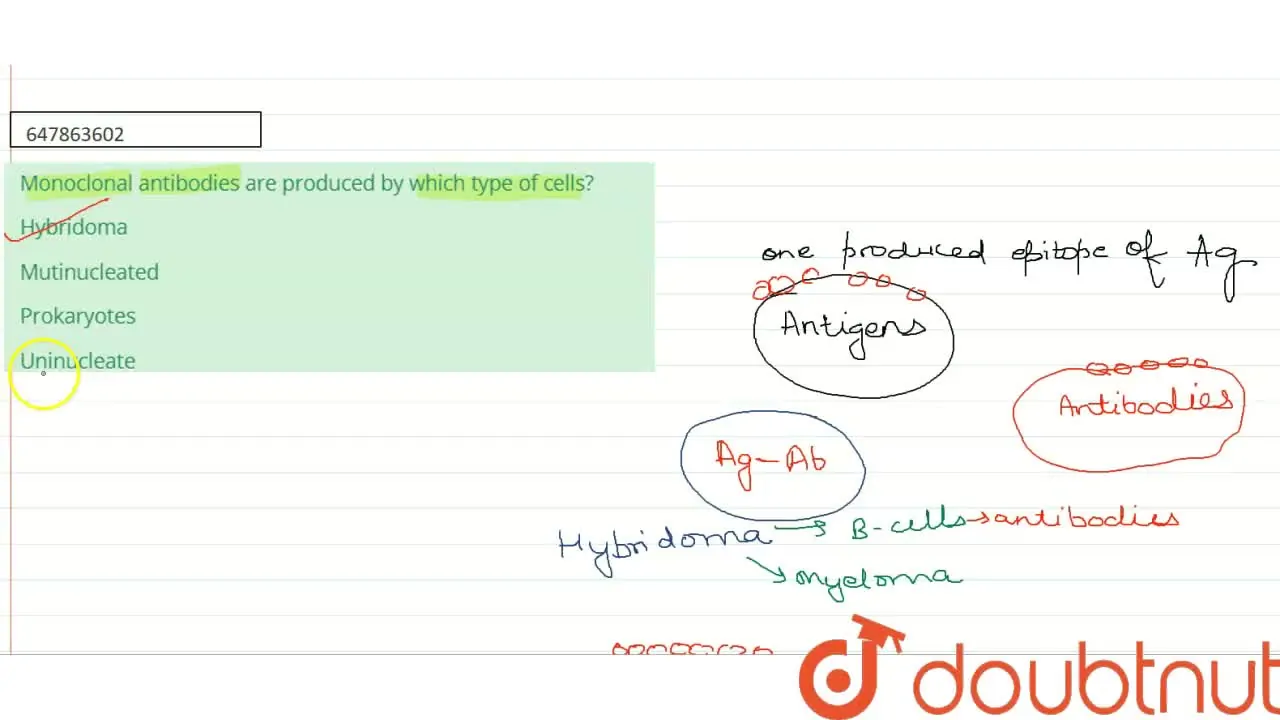 647863602
Monoclonal antibodies are produced by which type of cells?
Hybridoma
Mutinucleated
Prokaryotes
Uninucleate
one produced epitope of Ag
Antigens
Antibodies
Ag-Ab
Hybridoma → B-cells → antibodies
→ myeloma
doubtnut